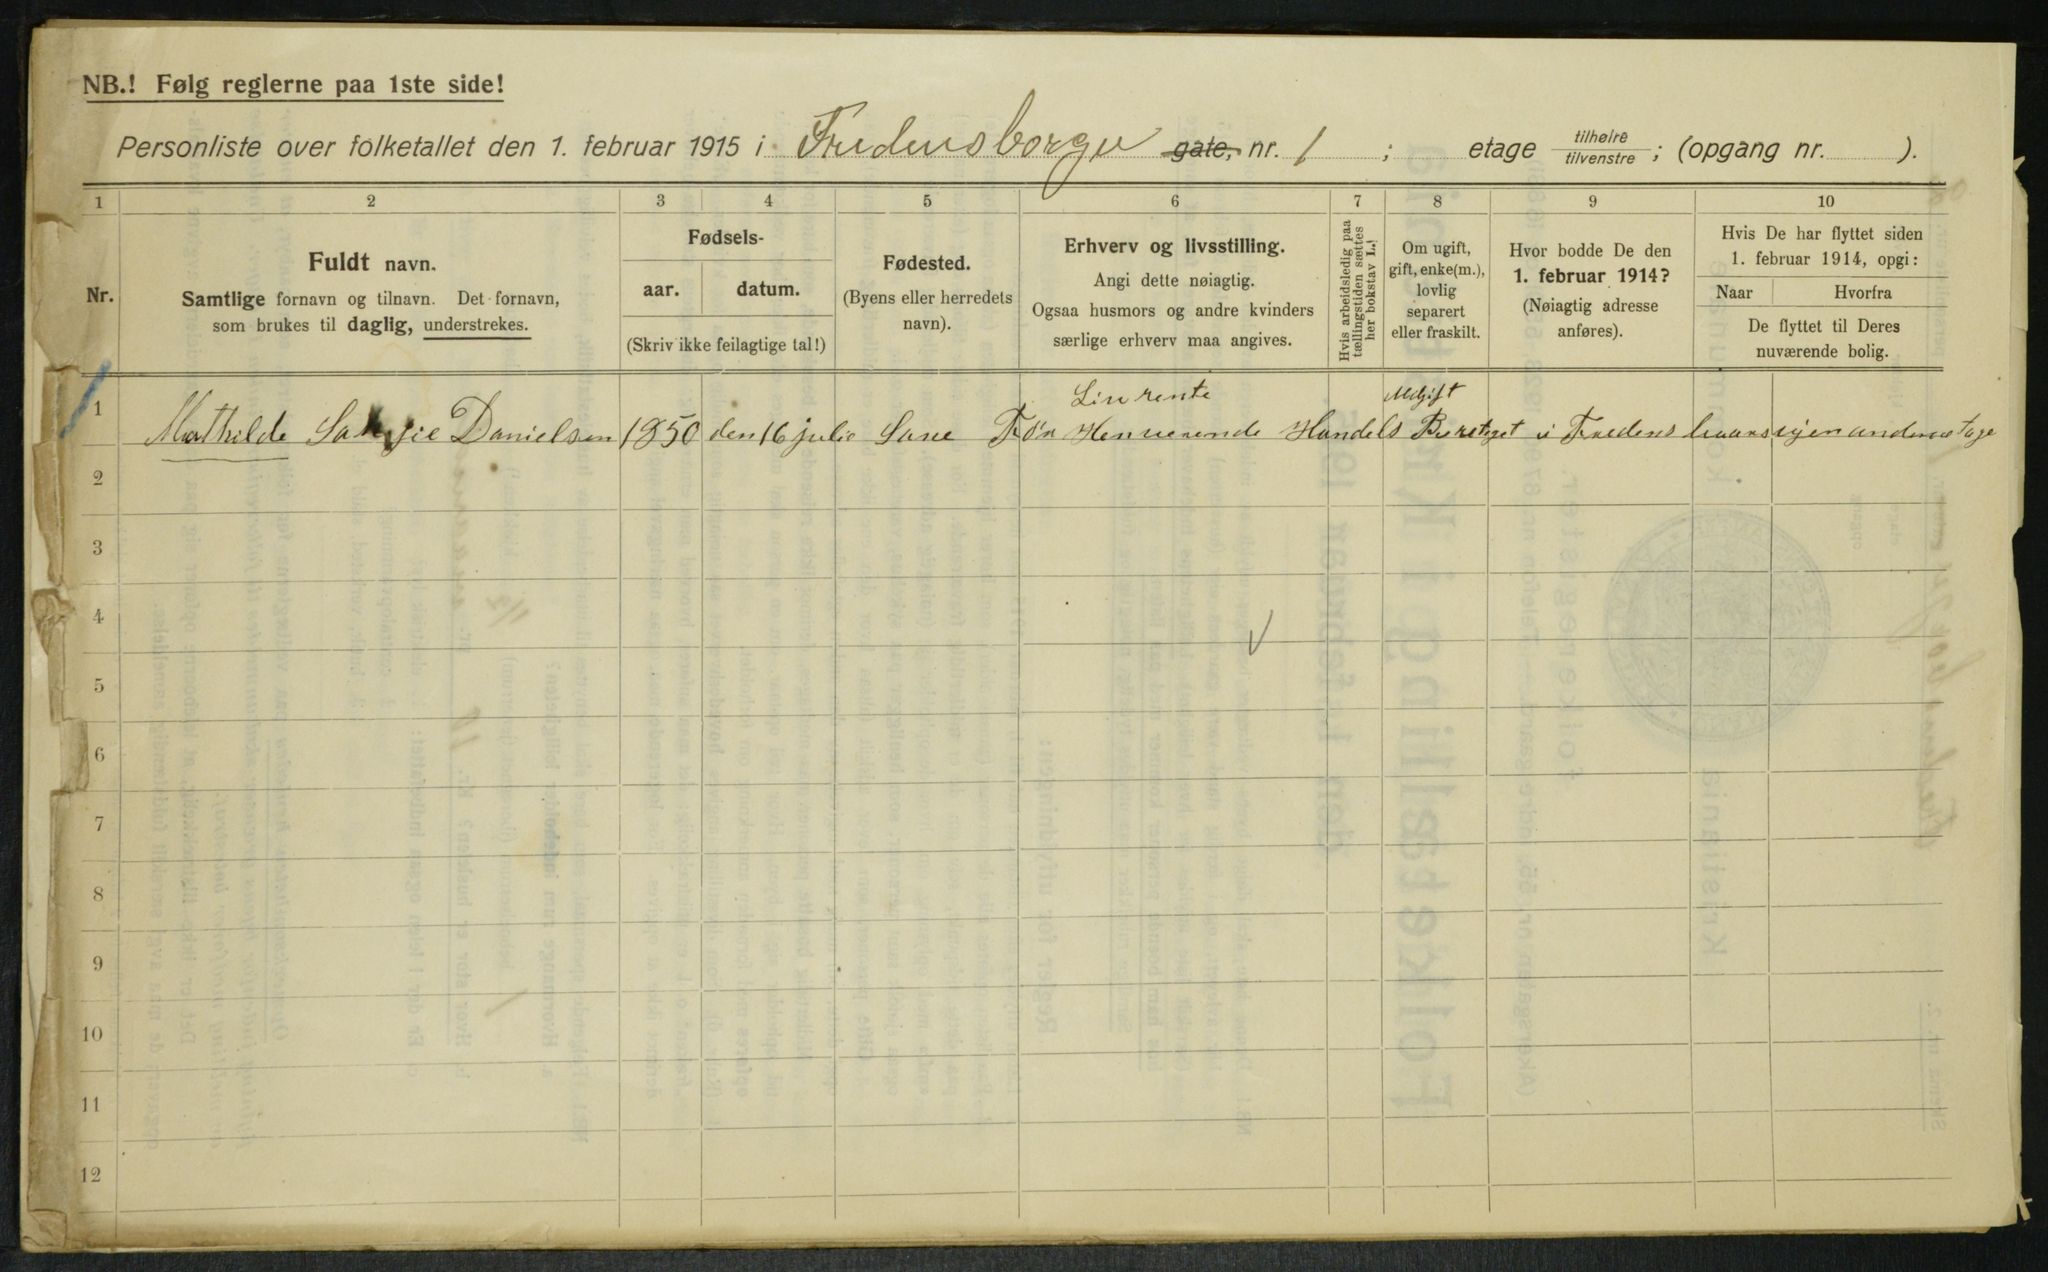 NB.! Følg reglerne paa 1ste side!
Personliste over folketallet den 1. februar 1915 i Fredensborgv gate, nr. 1 ; etage tilhøire / tilvenstre ; (opgang nr. ).
1 2 3 4 5 6 7 8 9 10
Nr.
Fuldt navn.
Samtlige fornavn og tilnavn. Det fornavn,
som brukes til daglig, understrekes.
Fødsels-
aar. datum.
(Skriv ikke feilagtige tal!)
Fødested.
(Byens eller herredets
navn).
Erhverv og livsstilling.
Angi dette nøiagtig.
Ogsaa husmors og andre kvinders
særlige erhverv maa angives.
Hvis arbeidsledig paa
tællingstiden sættes
her bokstav L.!
Om ugift,
gift, enke(m.),
lovlig
separert
eller fraskilt.
Hvor bodde De den
1. februar 1914?
(Nøiagtig adresse
anføres).
Hvis De har flyttet siden
1. februar 1914, opgi:
Naar Hvorfra
De flyttet til Deres
nuværende bolig.
Livrente
1 Mathilde Danielsen 1850 den 16 julie Før Henverende Handels
2
3
4
5
6
7
8
9
10
11
12